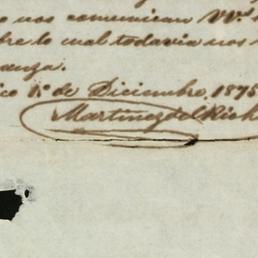 o nos comunican VV.s
bre lo cual todavia nos
anza.
ico 1º de Diciembre, 1875
Martinez del Rio h